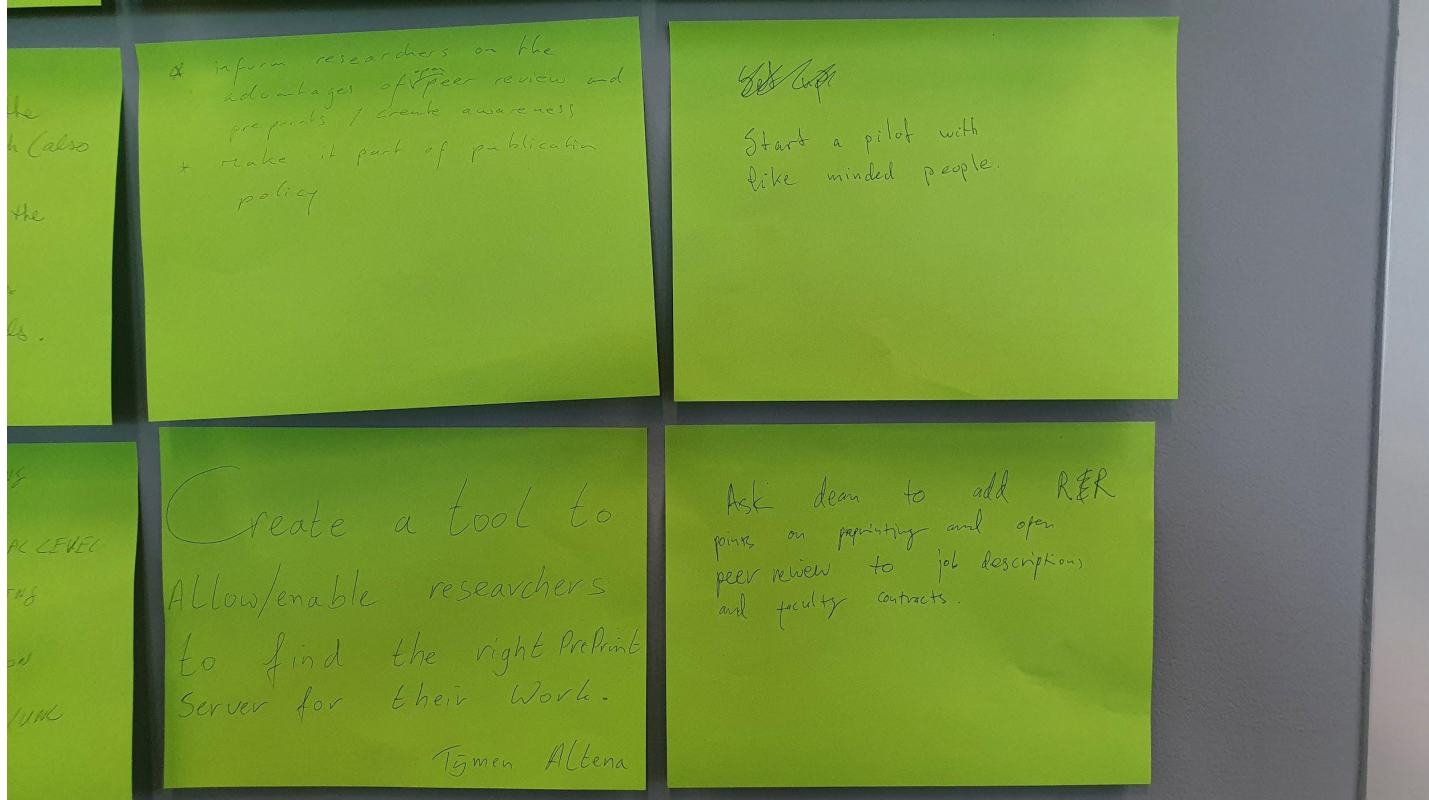 the
h (also
the
ls.
* inform researchers on the
advantages of open peer review and
preprints / create awareness
* Make it part of publication
policy
Start a pilot with
like minded people.
AL LEVEL
ON
Create a tool to
Allow/enable researchers
to find the right PrePrint
Server for their Work.
Tymen Altena
Ask dean to add R&R
points on preprinting and open
peer review to job descriptions
and faculty contracts.